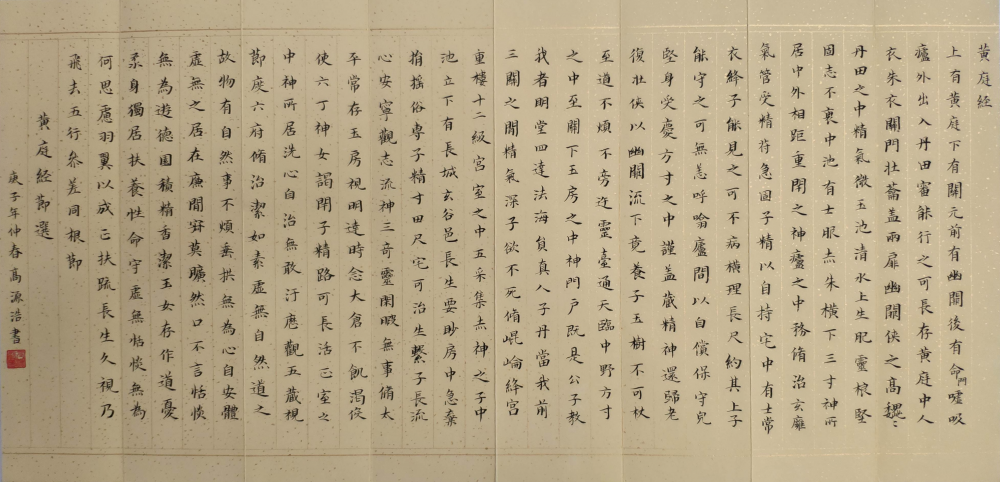 黄庭经
上有黄庭下有關元前有幽關後有命門噓吸
廬外出入丹田審能行之可長存黄庭中人
衣朱衣關門壮籥盖兩扉幽關俠之髙魏〻
丹田之中精氣微玉池清水上生肥靈根堅
固志不衰中池有士服赤朱橫下三寸神所
居中外相距重閉之神廬之中務脩治玄廱
氣管受精苻急固子精以自持宅中有士常
衣絳子能見之可不病橫理長尺約其上子
能守之可無恙呼噏廬間以自償保守皃
堅身受慶方寸之中謹盖藏精神還歸老
復壮俠以幽關流下竟養子玉樹不可杖
至道不煩不旁迕靈臺通天臨中野方寸
之中至關下玉房之中神門户既是公子教
我者明堂四達法海負真人子丹當我前
三關之間精氣深子欲不死脩崐崘絳宫
重樓十二級宫室之中五采集赤神之子中
池立下有長城玄谷邑長生要眇房中急棄
捐搖俗專子精寸田尺宅可治生繫子長流
心安寧觀志流神三竒靈閑暇無事脩太
平常存玉房視明達時念大倉不飢渴役
使六丁神女謁閉子精路可長活正室之
中神所居洗心自治無敢汙歷觀五藏視
節度六府脩治潔如素虚無自然道之
故物有自然事不煩垂拱無為心自安體
虚無之居在廉間寂莫曠然口不言恬惔
無為遊德園積精香潔玉女存作道憂
柔身獨居扶養性命守虚無恬惔無為
何思慮羽翼以成正扶疏長生久視乃
飛去五行參差同根節
黄庭經節選
庚子年仲春髙源浩書